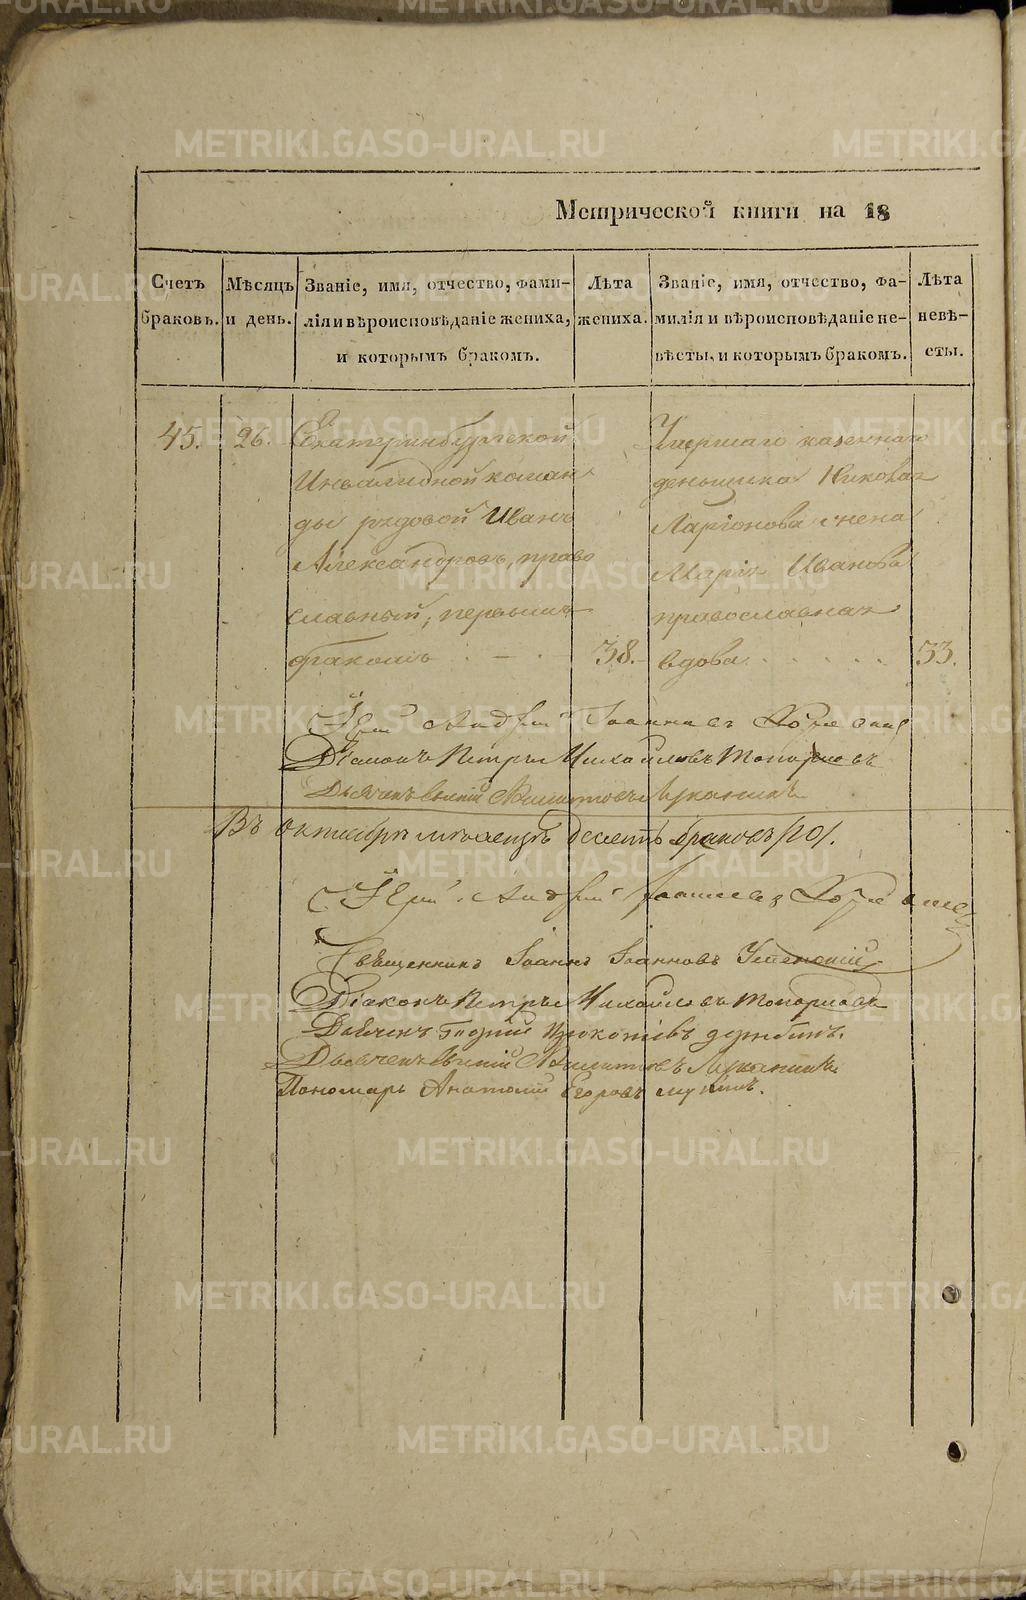 Метрической книги на 18
Счетъ браковъ.
Мѣсяцъ и день.
Званіе, имя, отчество, фами-
лія и вѣроисповѣданіе жениха,
и которымъ бракомъ.
Лѣта жениха.
Званіе, имя, отчество, фа-
милія и вѣроисповѣданіе не-
вѣсты, и которымъ бракомъ.
Лѣта невѣ-
сты.
45.
26.
Екатеринбургской
Инвалидной коман
ды рядовой Иванъ
Александровъ, право
славный, первымъ
бракомъ
38.
Умершаго казеннаго
деньщика
Ларіонова жена
Марія Иванова
православная
вдова
53.
Андрей Іоанновъ
Діаконъ Петръ Михайловъ Топорковъ
Дьячекъ
Въ октябрѣ мѣсяцѣ десять браковъ /10/.
Андрей Іоанновъ
Священникъ Іоаннъ Іоанновъ Успенскій
Діаконъ Петръ Михайловъ Топорковъ
Дьячекъ
Дьячекъ
Пономарь Анатолій Егоровъ
METRIKI.GASO-URAL.RU